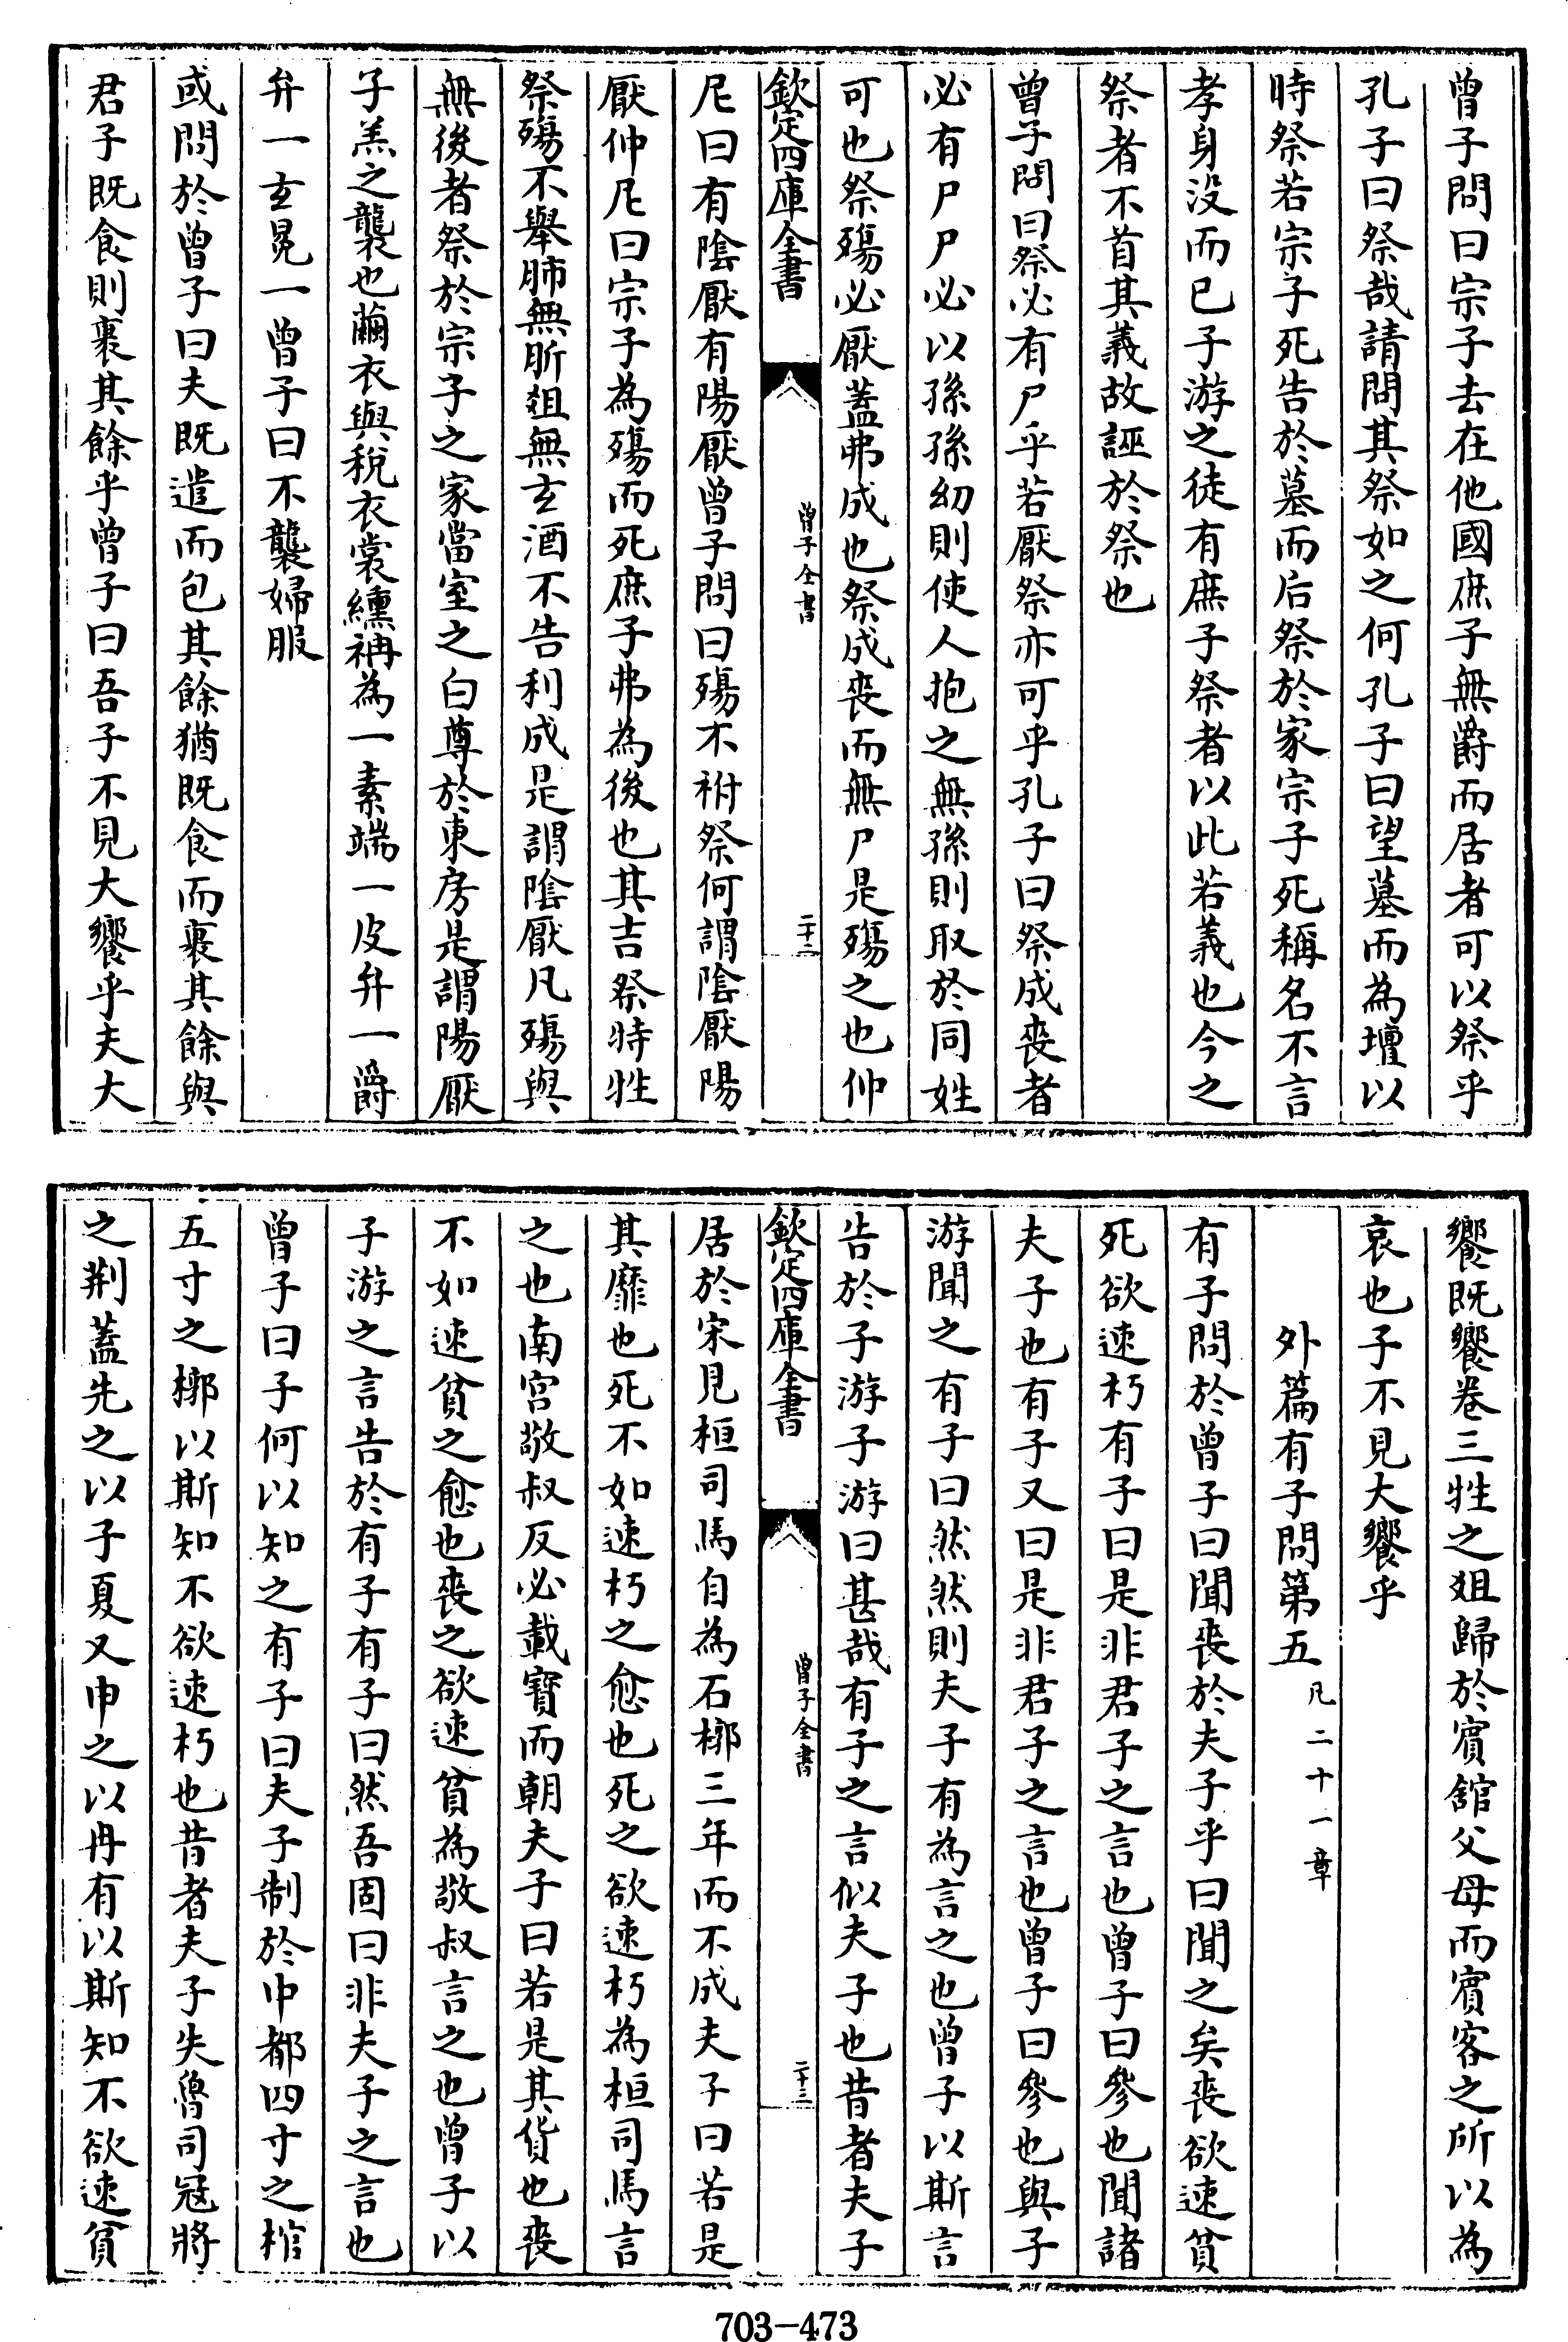 曾子問曰宗子去在他國庶子無爵而居者可以祭乎
孔子曰祭哉請問其祭如之何孔子曰望墓而為壇以
時祭若宗子死告於墓而后祭於家宗子死稱名不言
孝身没而已子游之徒有庶子祭者以此若義也今之
祭者不首其義故誣於祭也
曾子問曰祭必有尸乎若厭祭亦可乎孔子曰祭成喪者
必有尸尸必以孫孫幼則使人抱之無孫則取於同姓
可也祭殤必厭蓋弗成也祭成喪而無尸是殤之也仲
欽定四庫全書
曾子全書
二十二
尼曰有陰厭有陽厭曾子問曰殤不祔祭何謂陰厭陽
厭仲尼曰宗子為殤而死庶子弗為後也其吉祭特牲
祭殤不舉肺無肵爼無玄酒不告利成是謂陰厭凡殤與
無後者祭於宗子之家當室之白尊於東房是謂陽厭
子羔之襲也繭衣與稅衣裳纁袡為一素端一皮弁一爵
弁一玄冕一曾子曰不襲婦服
或問於曾子曰夫既遣而包其餘猶既食而裹其餘與
君子既食則裹其餘乎曾子曰吾子不見大饗乎夫大
饗既饗卷三牲之爼歸於賓舘父母而賓客之所以為
哀也子不見大饗乎
外篇有子問第五凡二十一章
有子問於曾子曰聞喪於夫子乎曰聞之矣喪欲速貧
死欲速朽有子曰是非君子之言也曾子曰參也聞諸
夫子也有子又曰是非君子之言也曾子曰參也與子
游聞之有子曰然然則夫子有為言之也曾子以斯言
告於子游子游曰甚哉有子之言似夫子也昔者夫子
欽定四庫全書
曾子全書
二十三
居於宋見桓司馬自為石槨三年而不成夫子曰若是
其靡也死不如速朽之愈也死之欲速朽為桓司馬言
之也南宫敬叔反必載寳而朝夫子曰若是其貨也喪
不如速貧之愈也喪之欲速貧為敬叔言之也曾子以
子游之言告於有子有子曰然吾固曰非夫子之言也
曾子曰子何以知之有子曰夫子制於中都四寸之棺
五寸之槨以斯知不欲速朽也昔者夫子失魯司冦將
之荆蓋先之以子夏又申之以冉有以斯知不欲速貧
703-473